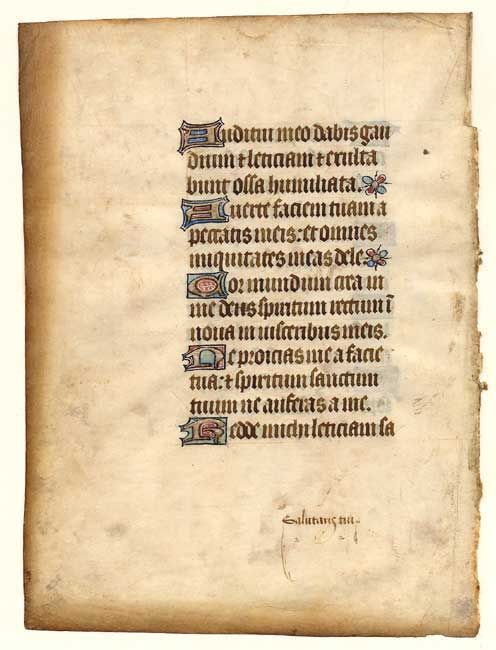 Auditui meo dabis gau
dium ⁊ leticiam ⁊ exulta
bunt ossa humiliata.
Auerte faciem tuam a
peccatis meis: et omnes
iniquitates meas dele.
Cor mundum crea in
me deus spiritum rectum ī
noua in uisceribus meis.
Ne proicias me a facie
tua: ⁊ spiritum sanctum
tuum ne auferas a me.
Redde michi leticiam sa
Salutaris tui